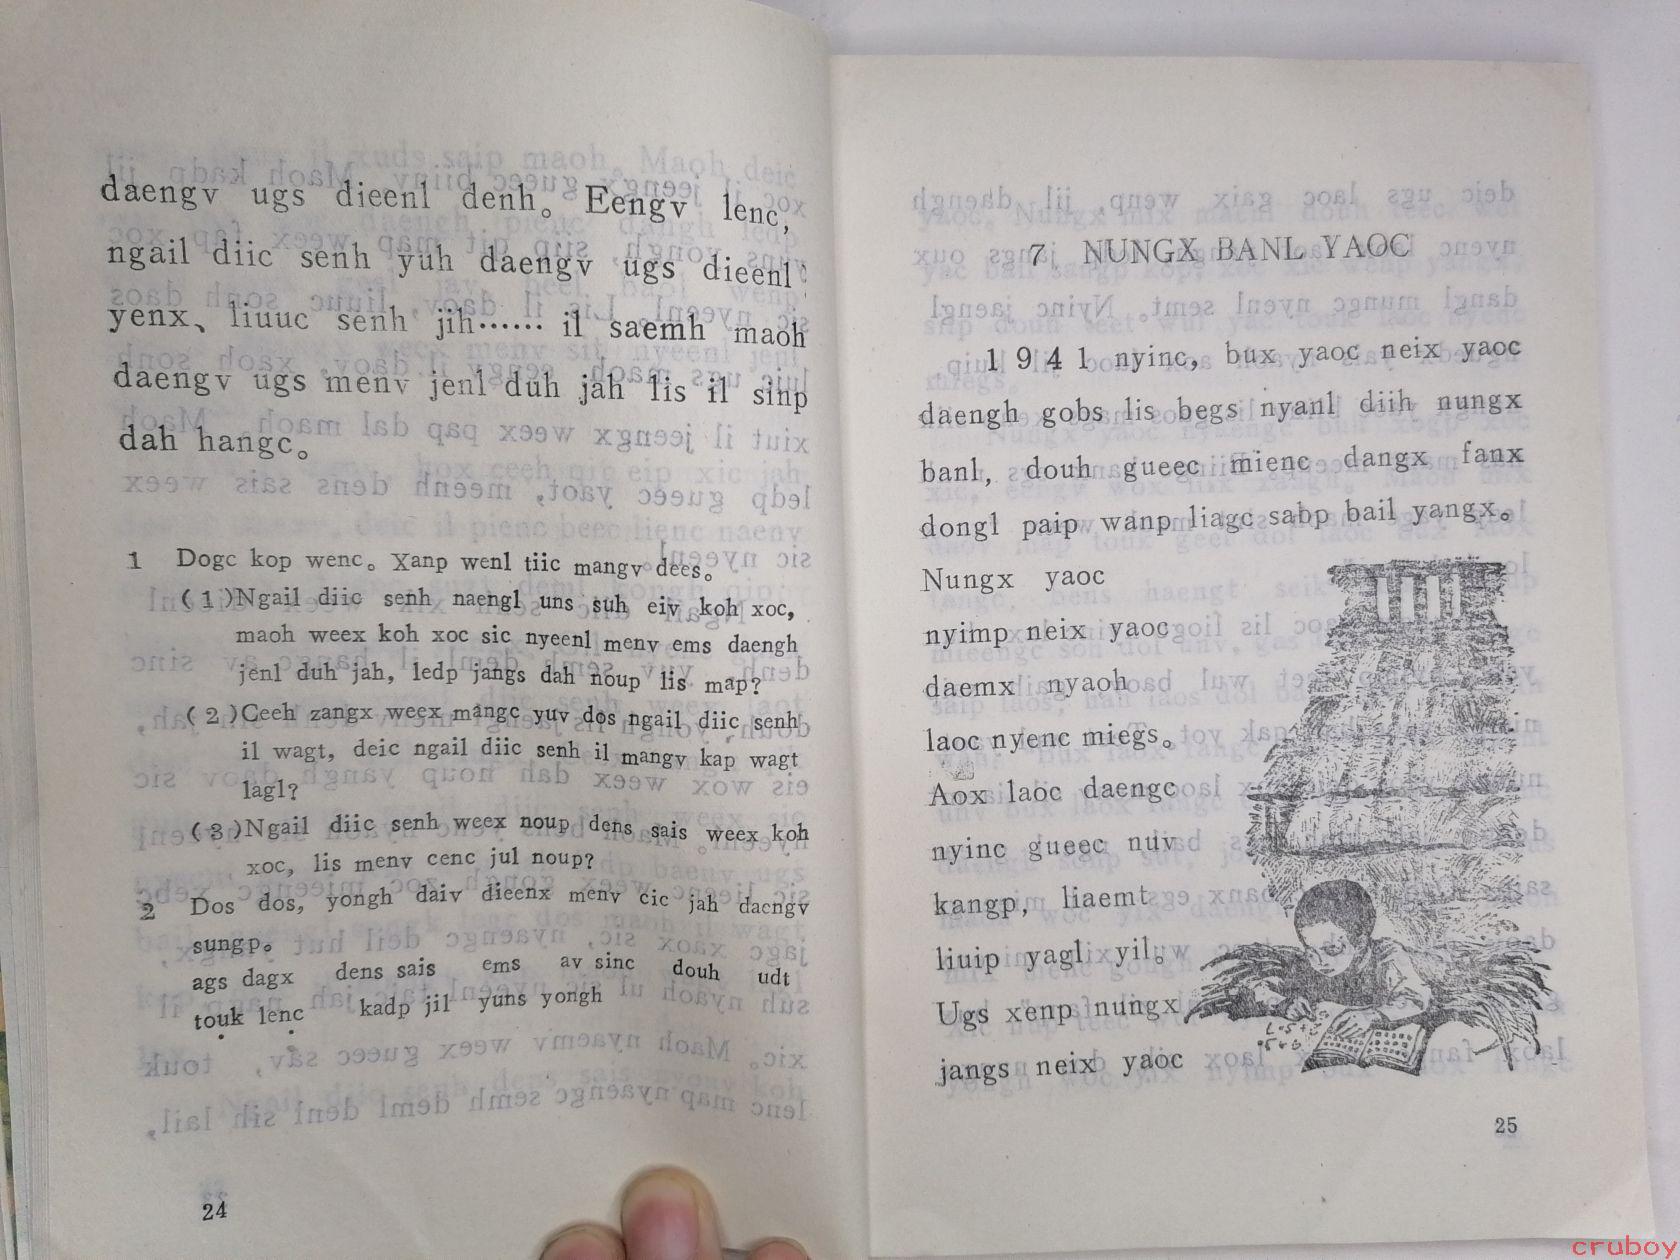 daengv ugs dieenl denh。 Eengv lenc,
ngail diic senh yuh daengv ugs dieenl
yenx、 liuuc senh jih…… il saemh maoh
daengv ugs menv jenl duh jah lis il sinp
dah hangc。
1 Dogc kop wenc。 Xanp wenl tiic mangv dees。
(1)Ngail diic senh naengl uns suh eiv koh xoc,
maoh weex koh xoc sic nyeenl menv ems daengh
jenl duh jah, ledp jangs dah noup lis map?
(2)Ceeh zangx weex mangc yuv dos ngail diic senh
il wagt, deic ngail diic senh il mangv kap wagt
lagl?
(3)Ngail diic senh weex noup dens sais weex koh
xoc, lis menv cenc jul noup?
2 Dos dos, yongh daiv dieenx menv cic jah daengv
sungp。
ags dagx dens sais ems av sinc douh udt
touk lenc kadp jil yuns yongh
24
7 NUNGX BANL YAOC
1941 nyinc, bux yaoc neix yaoc
daengh gobs lis begs nyanl diih nungx
banl, douh gueec mienc dangx fanx
dongl paip wanp liagc sabp bail yangx。
Nungx yaoc
nyimp neix yaoc
daemx nyaoh
laoc nyenc miegs。
Aox laoc daengc
nyinc gueec nuv
kangp, liaemt
liuip yagl yil。
Ugs xenp nungx
jangs neix yaoc
25
cruboy